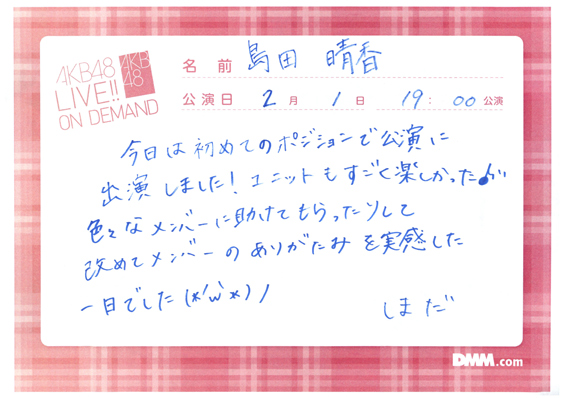 AKB48
LIVE!!
ON DEMAND
AKB
48
名前 島田 晴香
公演日 2月 1日 19:00公演
今日は初めてのポジションで公演に
出演しました!ユニットもすごく楽しかった♪
色々なメンバーに助けてもらったりして
改めてメンバーのありがたみを実感した
一日でした(*'ω`*)ノ
しまだ
DMM.com